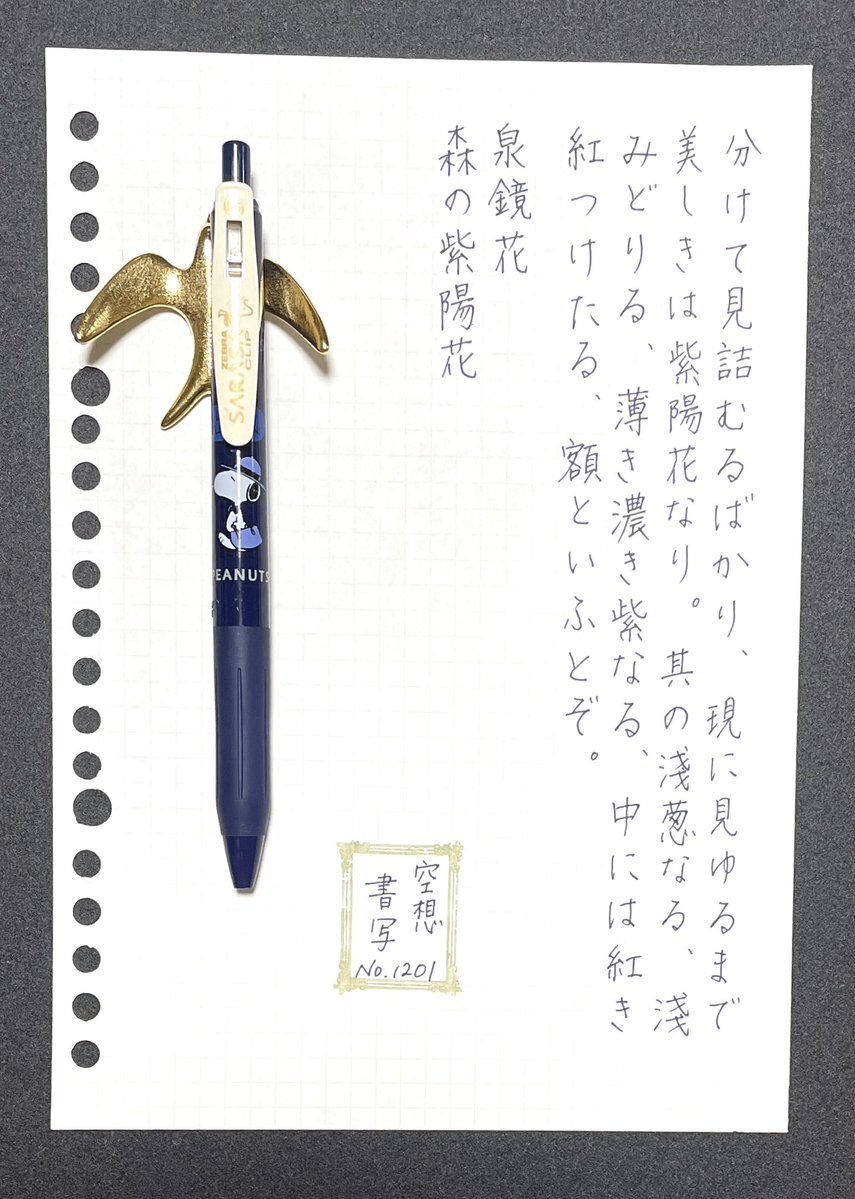 分けて見詰むるばかり、現に見ゆるまで
美しきは紫陽花なり。其の淺葱なる、淺
みどりる、薄き濃き紫なる、中には紅き
紅つけたる、額といふとぞ。
泉鏡花
森の紫陽花
空想
書写
No.1201
ZEBRA
SARASA
CLIP
PEANUTS